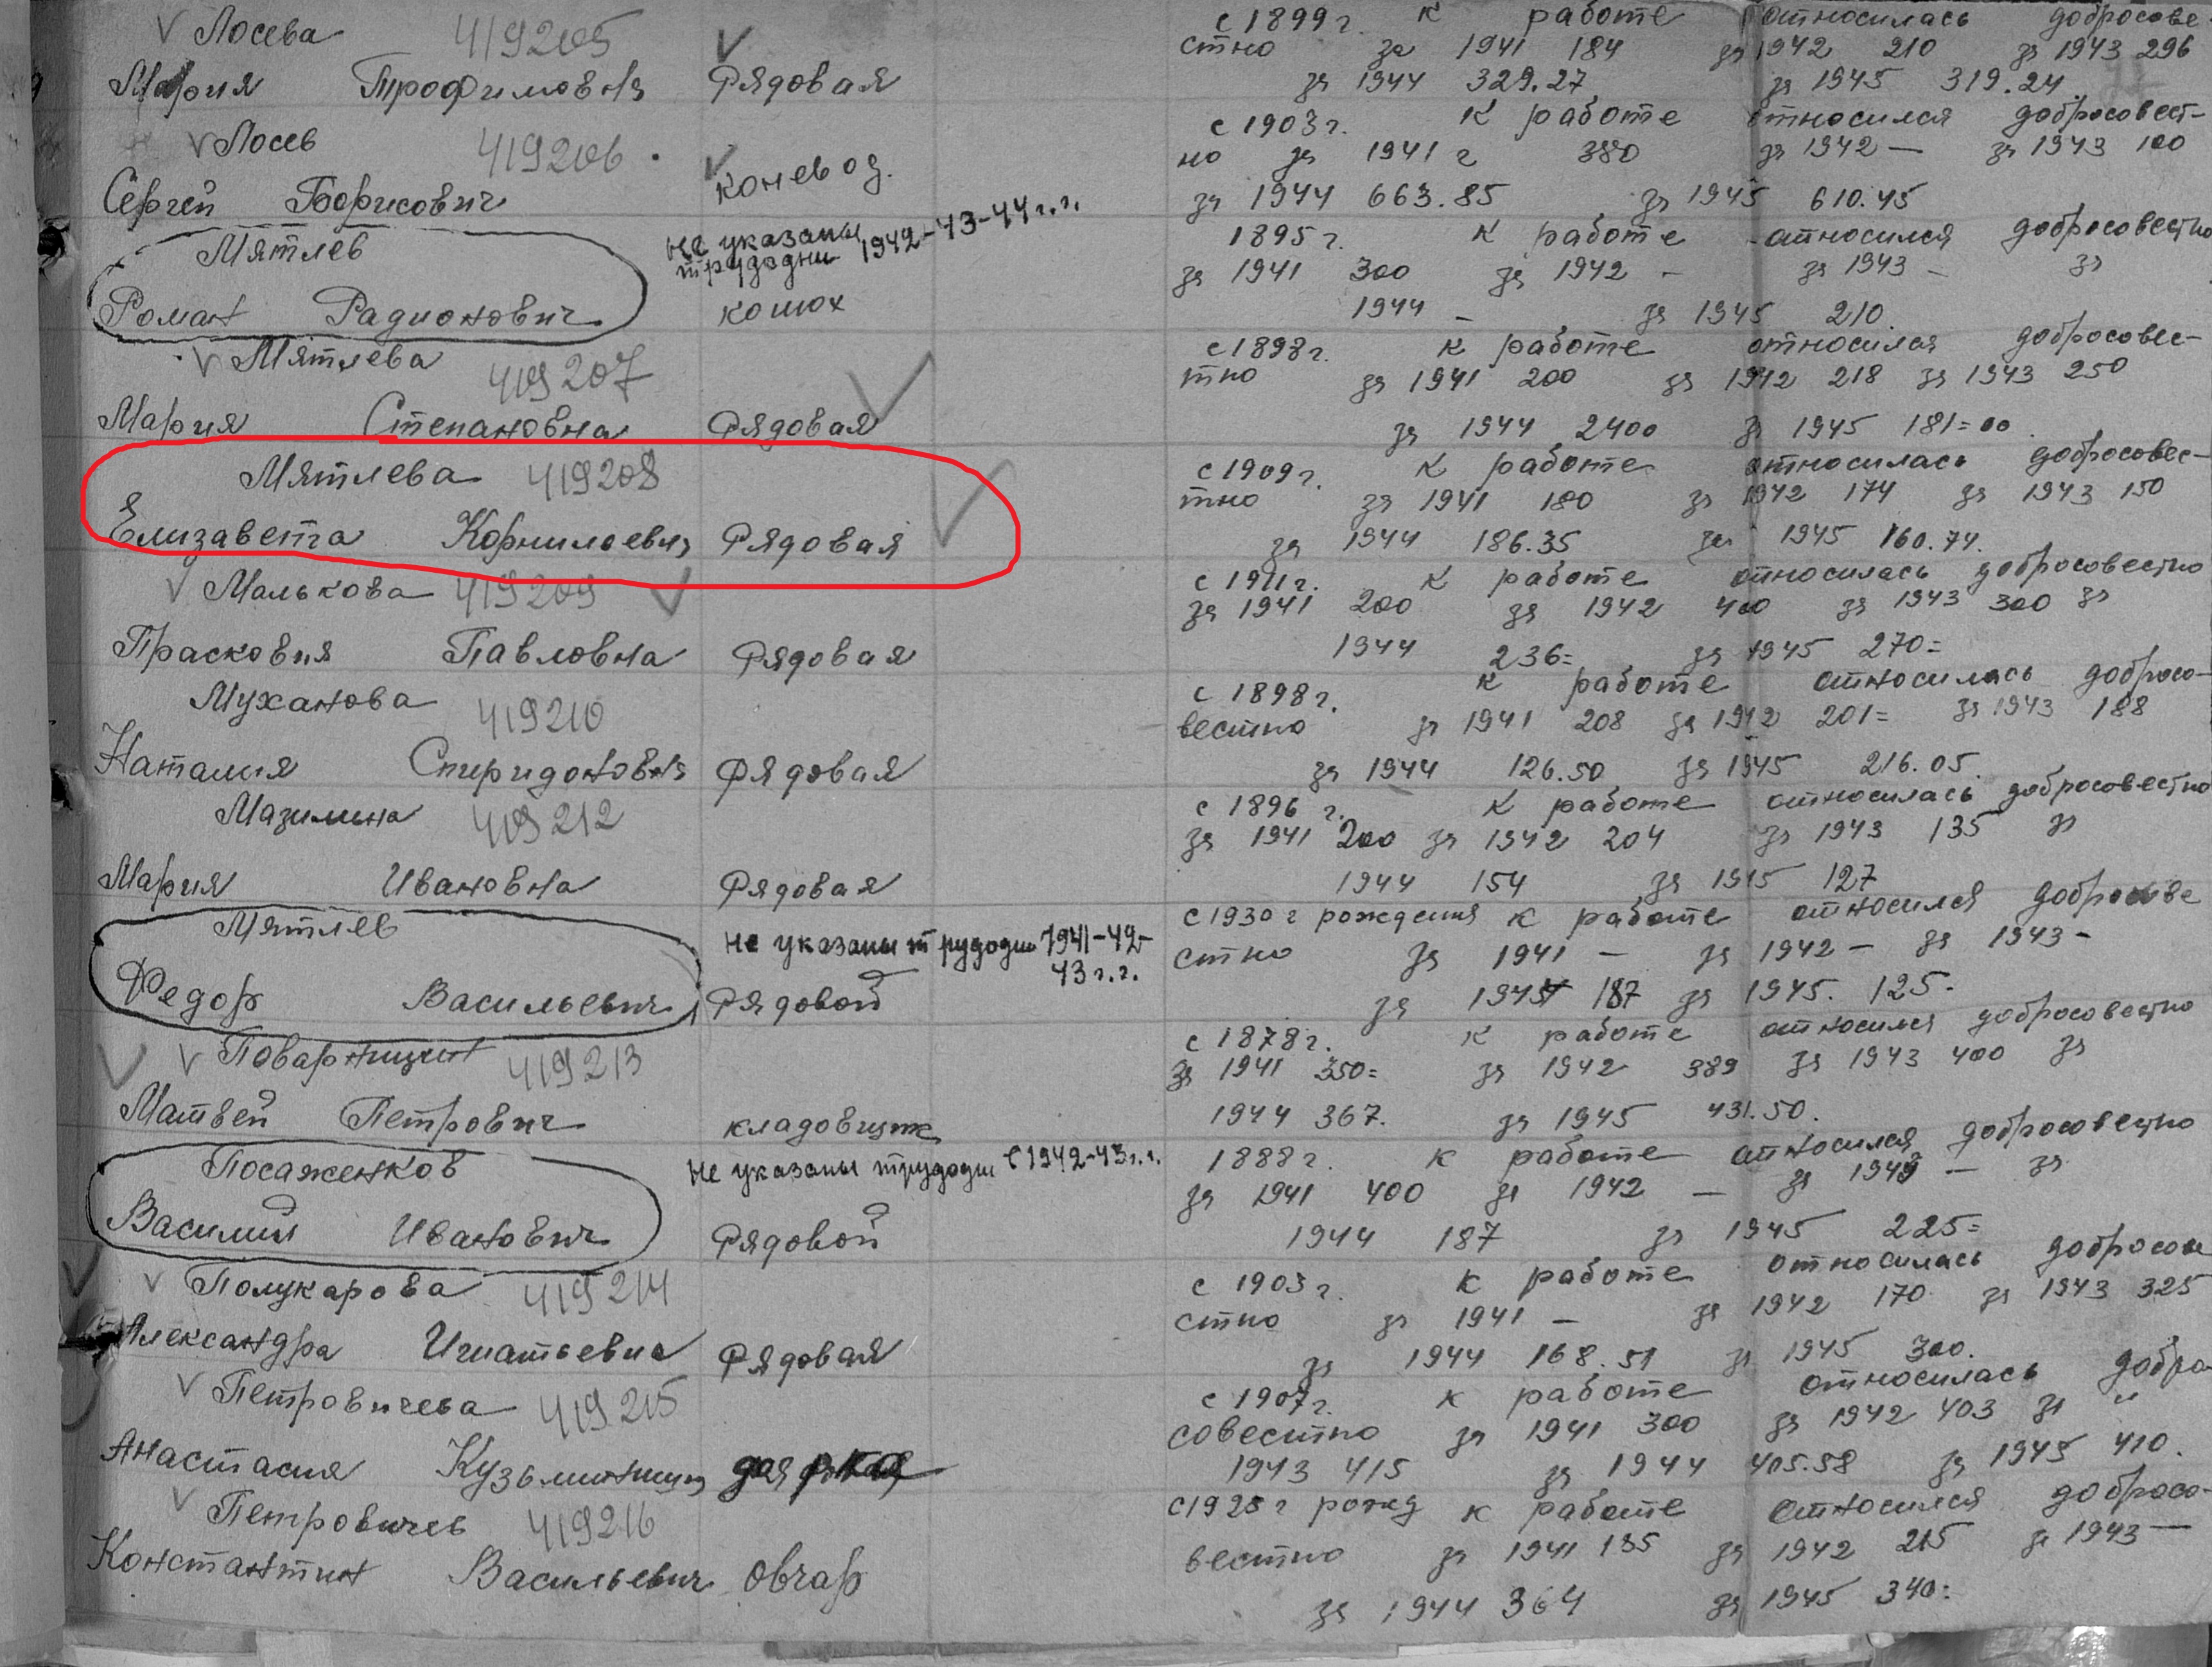 Лосева 419205
с 1899 г. к работе относилась добросове-
стно за 1941 184 за 1942 210 за 1943 296
Мария Трофимовна Рядовая
за 1944 329.27 за 1945 319.24
Лосев 419206
с 1903 г. к работе относился добросовест-
но за 1941 г 380 за 1942 — за 1943 100
Сергей Борисович коневод.
за 1944 663.85 за 1945 610.45
Мятлев
не указаны трудодни 1942-43-44 г.г.
1895 г. к работе относился добросовестно
за 1941 300 за 1942 - за 1943 - за
Роман Радионович конюх
1944 - за 1945 210
Мятлева 419207
с 1898 г. к работе относился добросовес-
тно за 1941 200 за 1942 218 за 1943 250
Мария Степановна Рядовая
за 1944 2400 за 1945 181=00
Мятлева 419208
с 1909 г. к работе относилась добросовес-
тно за 1941 180 за 1942 174 за 1943 150
Елизавета Корнилоевна Рядовая
за 1944 186.35 за 1945 160.74.
Малькова 419209
с 1911 г. к работе относилась добросовестно
за 1941 200 за 1942 400 за 1943 300 за
Прасковия Павловна Рядовая
1944 236= за 1945 270=
Муханова 419210
с 1898 г. к работе относилась добросо-
вестно за 1941 208 за 1942 201= за 1943 188
Наталия Спиридоновна Рядовая
за 1944 126.50 за 1945 216.05
Мазилина 419212
с 1896 г. к работе относилась добросовестно
за 1941 200 за 1942 204 за 1943 135 за
Мария Ивановна Рядовая
1944 154 за 1945 127
Мятлев
не указаны трудодни 1941-42-
43 г.г.
с 1930 г рождения к работе относился добросове
стно за 1941 — за 1942 — за 1943 -
Федор Васильевич Рядовой
за 1944 187 за 1945. 125-
Поварницин 419213
с 1878 г. к работе относился добросовестно
за 1941 350= за 1942 389 за 1943 400 за
Матвей Петрович кладовщик
1944 367. за 1945 431.50.
Посаженков
не указаны трудодни с 1942-43 г.г.
1888 г. к работе относился добросовестно
за 1941 400 за 1942 — за 1943 — за
Василий Иванович Рядовой
1944 187 за 1945 225=
Полукарова 419214
с 1903 г. к работе относилась добросове
стно за 1941 — за 1942 170 за 1943 325
Александра Игнатьевна Рядовая
за 1944 168.51 за 1945 300.
Петровичева 419215
с 1907 г. к работе относилась добро-
совестно за 1941 300 за 1942 403 за "
Анастасия
1943 415 за 1944 405.58 за 1945 410.
Петровичев 419216
с 1925 г рожд к работе относился добросо-
вестно за 1941 135 за 1942 215 за 1943 —
Константин Васильевич Овчар
за 1944 364 за 1945 340=